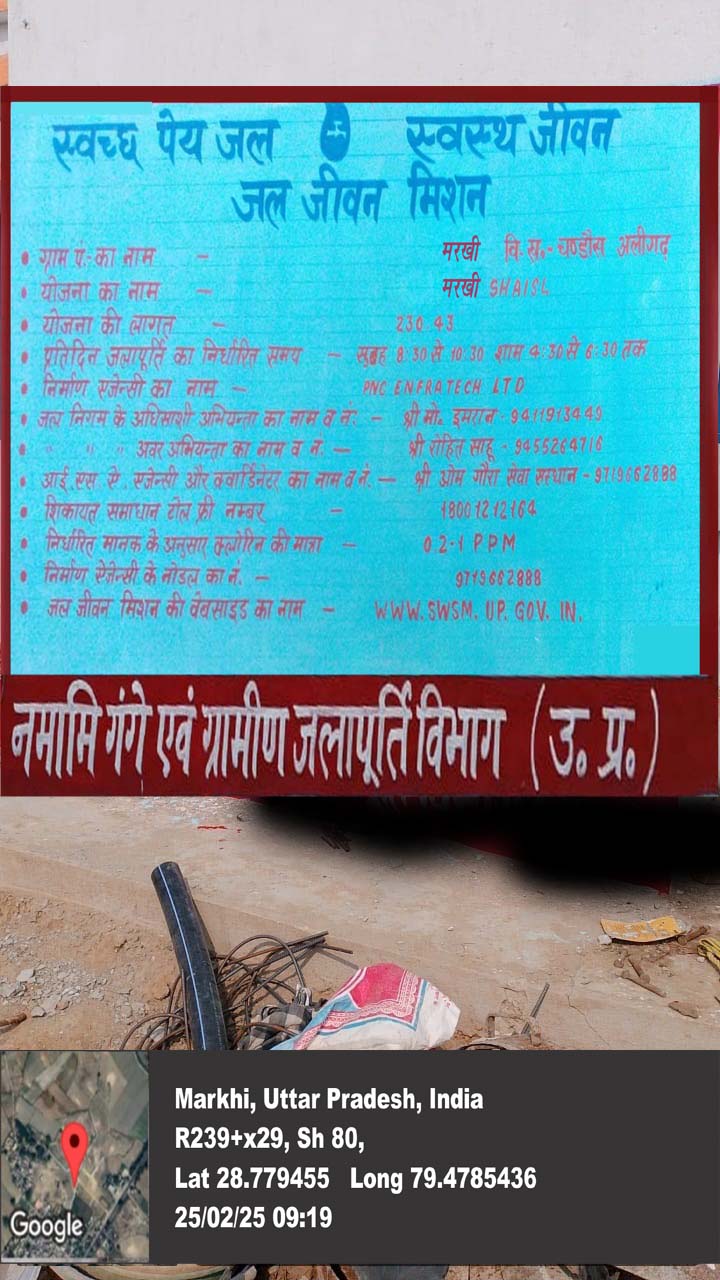 स्वच्छ पेय जल स्वस्थ जीवन
जल जीवन मिशन
• ग्राम पं.-का नाम - मरखी वि.ख.-चण्डौस अलीगढ़
• योजना का नाम - मरखी SHAISL
• योजना की लागत - 230.43
• प्रतिदिन जलापूर्ति का निर्धारित समय - सुबह 8:30 से 10:30 शाम 4:30 से 6:30 तक
• निर्माण एजेन्सी का नाम - PNC ENFRATECH LTD
• जल निगम के अधिसाशी अभियन्ता का नाम व नं: - श्री मो. इमरान - 9411913449
• " " " अवर अभियन्ता का नाम व नं. - श्री रोहित साहू - 9455264716
• आई.एस.ऐ. एजेन्सी और क्वार्डिनेटर का नाम व नं. - श्री ओम गौरा सेवा सस्थान - 9719662888
• शिकायत समाधान टोल फ्री नम्बर - 18001212164
• निर्धारित मानक के अनुसार क्लोरिन की मात्रा - 0.2-1 PPM
• निर्माण ऐजेन्सी के नोडल का नं. - 9719662888
• जल जीवन मिशन की वेबसाइड का नाम - WWW.SWSM.UP.GOV.IN.
नमामि गंगे एवं ग्रामीण जलापूर्ति विभाग (उ.प्र.)
Markhi, Uttar Pradesh, India
R239+x29, Sh 80,
Lat 28.779455 Long 79.4785436
25/02/25 09:19
Google